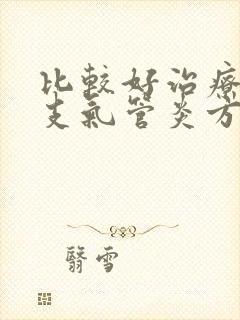 比較好治療
支氣管炎方
翳雪